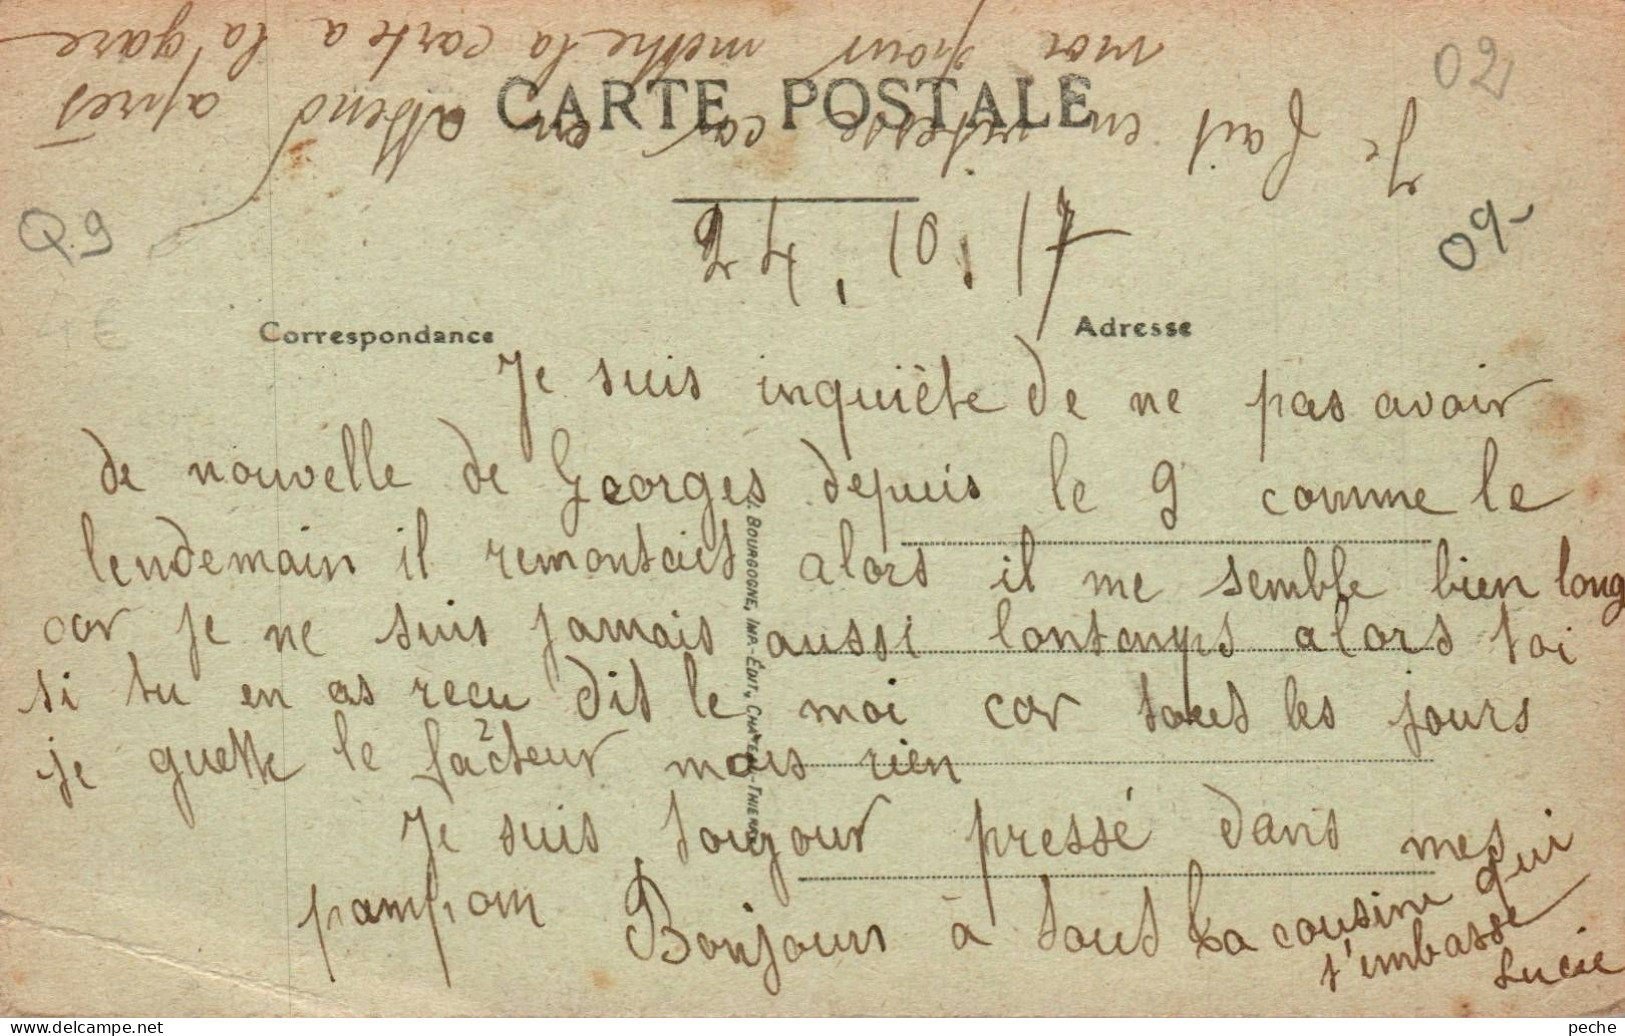 Je fait en vitesse car on attend après
moi pour mettre la carte a la gare
CARTE POSTALE
02
Q9
09-
4€
24.10.17
Correspondance
Adresse
Je suis inquiète de ne pas avoir
de nouvelle de Georges depuis le 9 comme le
lendemain il remontait alors il me semble bien long
car je ne suis jamais aussi lontemps alors toi
si tu en as recu dit le moi car tout les jours
je guette le facteur mais rien
Je suis toujour pressé dans mes
pampiom Bonjours à tous La cousine qui
t'embasse
Lucie
J. BOURGOGNE, IMP.-ÉDIT., CHATEAU-THIERRY
peche